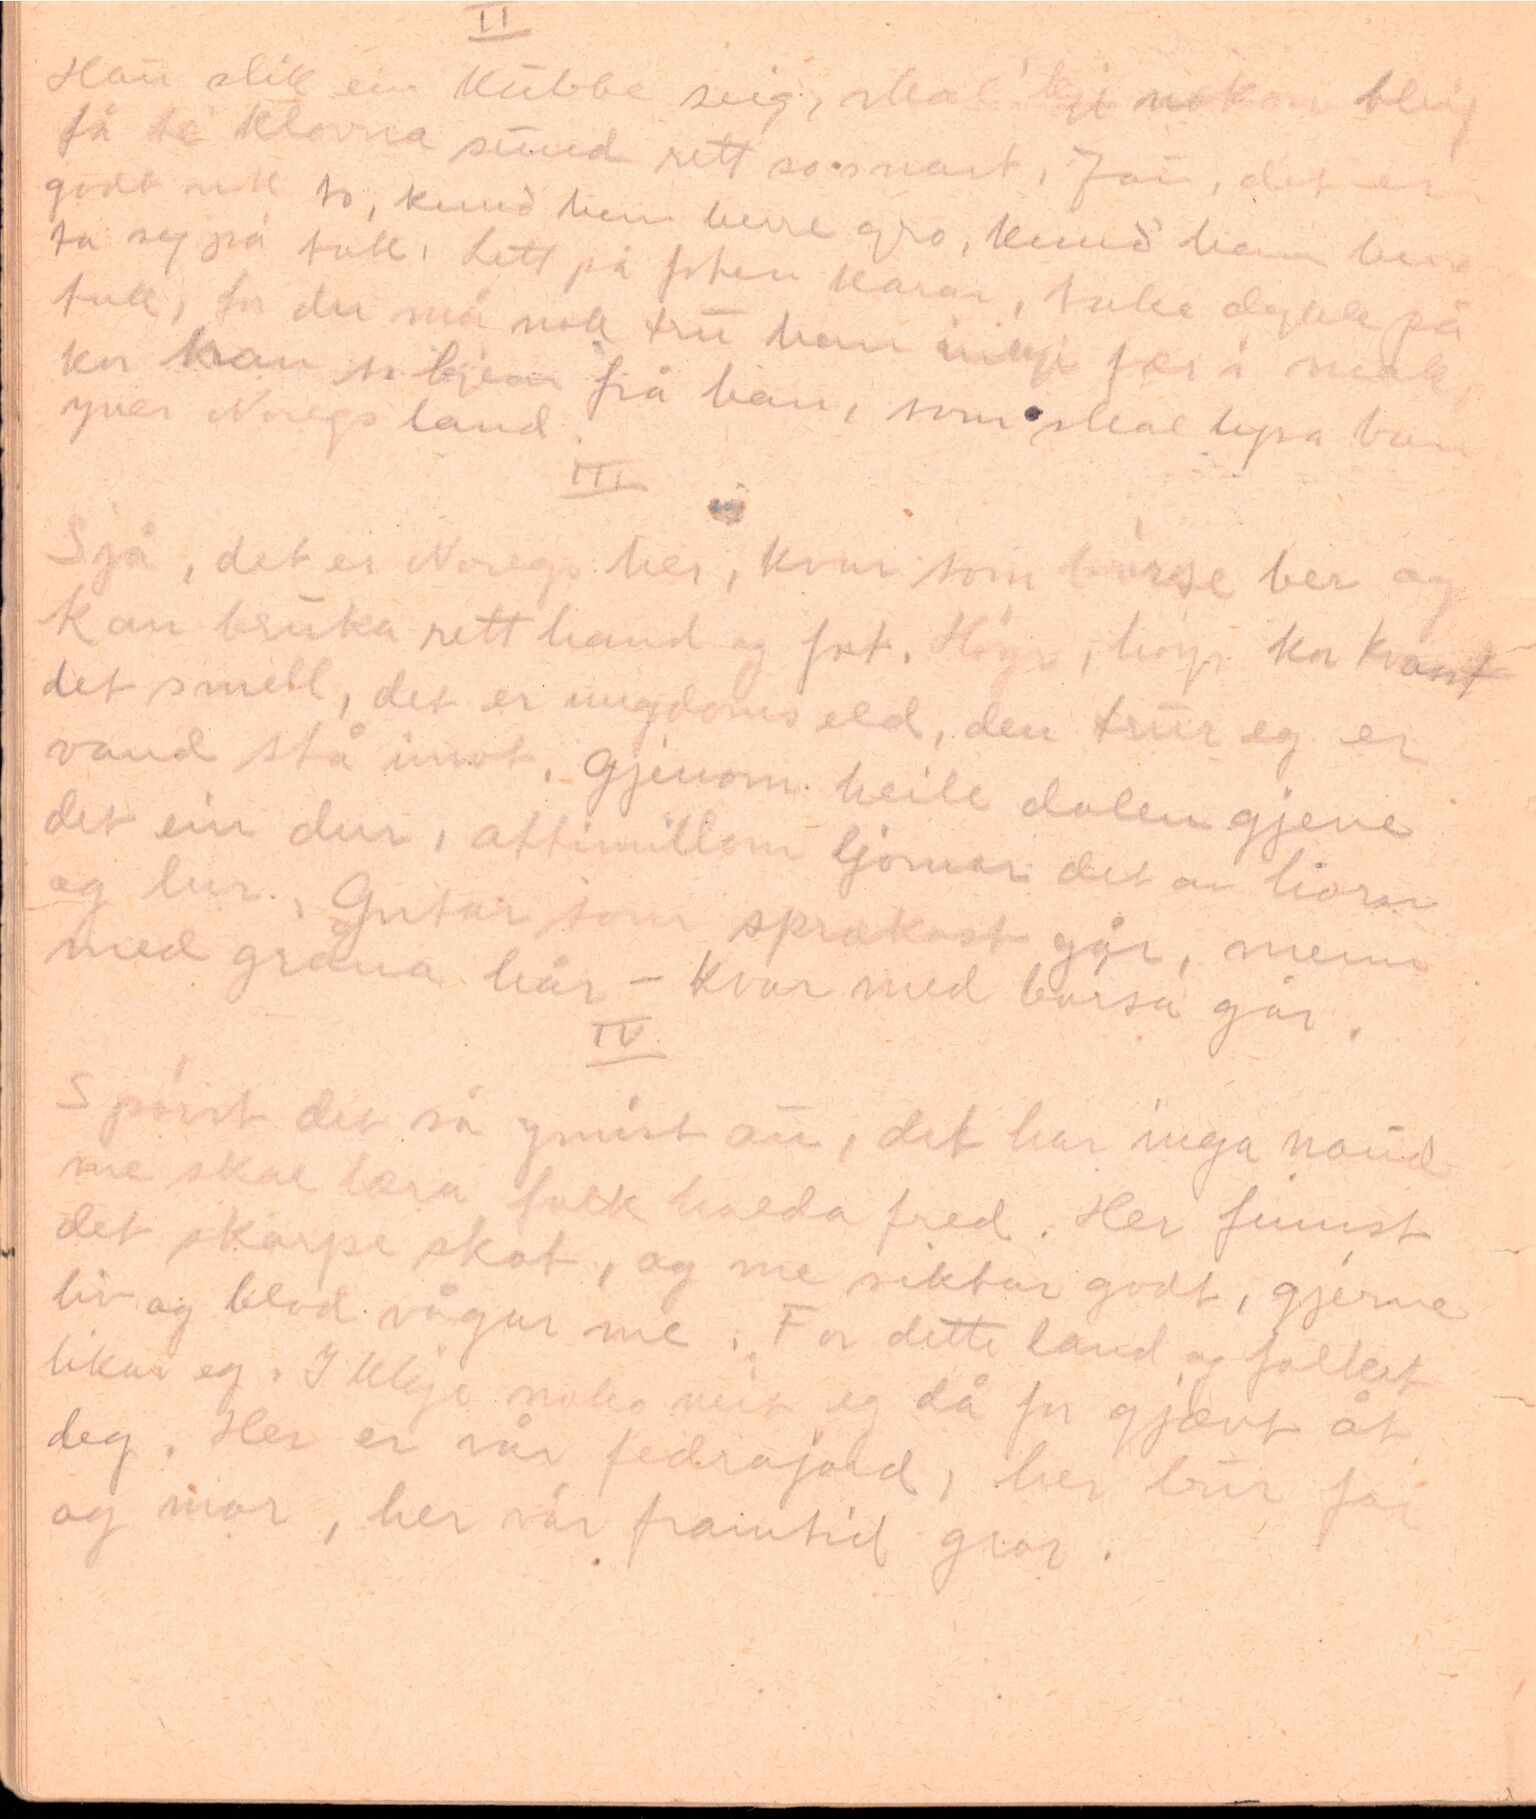 II
Hau slik ein kubbe seig, skal ikji nokon bleig
få te klovna sund rett so snart, Jau, det er
godt nok to, kund han berre gro, kund han berr
ta seg på tak. Lett på foten karar, take dykk på
tak, for du må nok tru han inkje fær i mak,
kor han so kjem frå han, som skal lysa ban
yver Noregs land.
III
Sjå, det er Noregs her, kvar som börse ber og
kan bruka rett hand og fot. Höyr, höyr kor kvast
det smell, det er ungdoms eld, den trur eg er
vand stå imot. Gjenom heile dalen gjeve
det ein dur, attimillom ljomar det av horn
og lur. Gutar som sprækast går, menn
med gråna hår - kvar med börsa går.
IV
Spörst det så ymist au, det har inga naud
me skal læra folk halda fred. Her finnst
det skarpe skot, og me siktar godt, gjerne
liv og blod vågar me. For dette land og folket
likar eg. Ikkje noko veit eg då for gjævt åt
deg. Her er vår fedrajord, her bur far
og mor, her vår framtid gror.